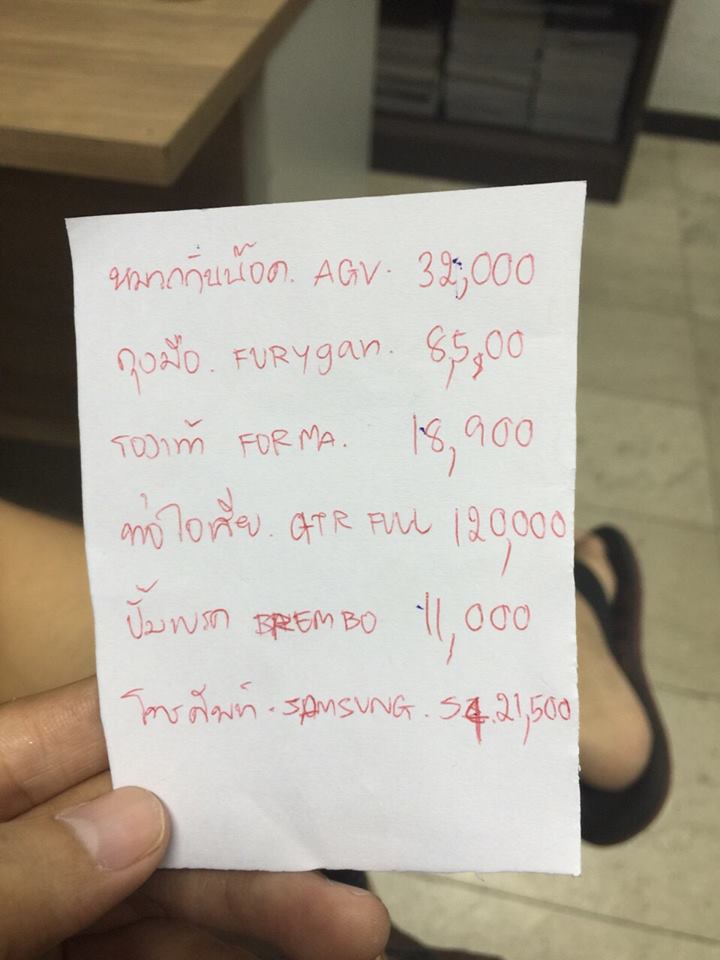 หมวกกันน๊อค. AGV. 32,000
ถุงมือ. FURYgan. 8,5,00
รองเท้า FORMA. 18,900
ท่อไอเสีย. GTR FULL 120,000
ปั๊มเบรค BREMBO 11,000
โทรศัพท์. SAMSUNG. S4.21,500